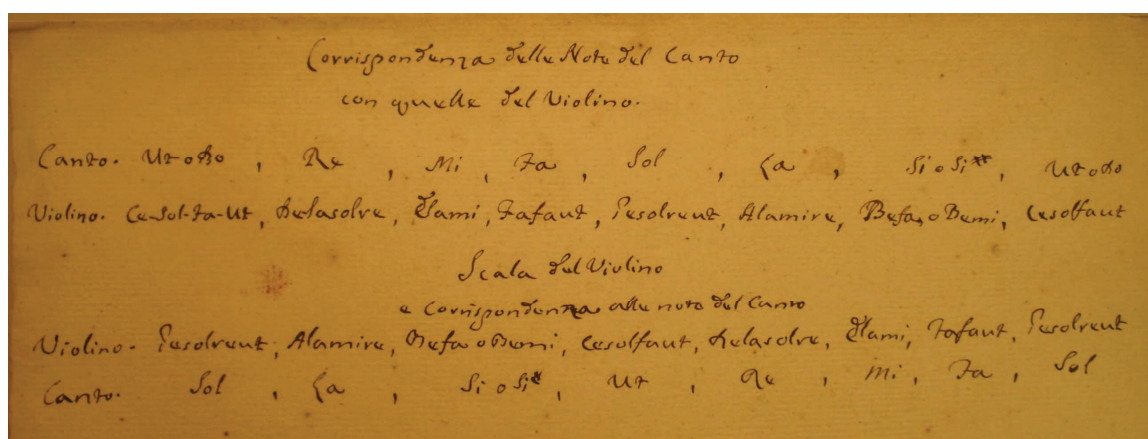 Corrispondenza delle Note del Canto
con quelle del Violino.
Canto. Ut o Do, Re, Mi, Fa, Sol, La, Si o Si#, Ut o Do
Violino. Ce-Sol-Fa-Ut, Delasolre, Elami, Fafaut, Gesolreut, Alamire, Befa, o Bemi, Cesolfaut
Scala del Violino
e Corrispondenza alle note del Canto
Violino. Gesolreut, Alamire, Befa o Bemi, Cesolfaut, Delasolre, Elami, Fafaut, Gesolreut
Canto. Sol, La, Si o Si#, Ut, Re, Mi, Fa, Sol